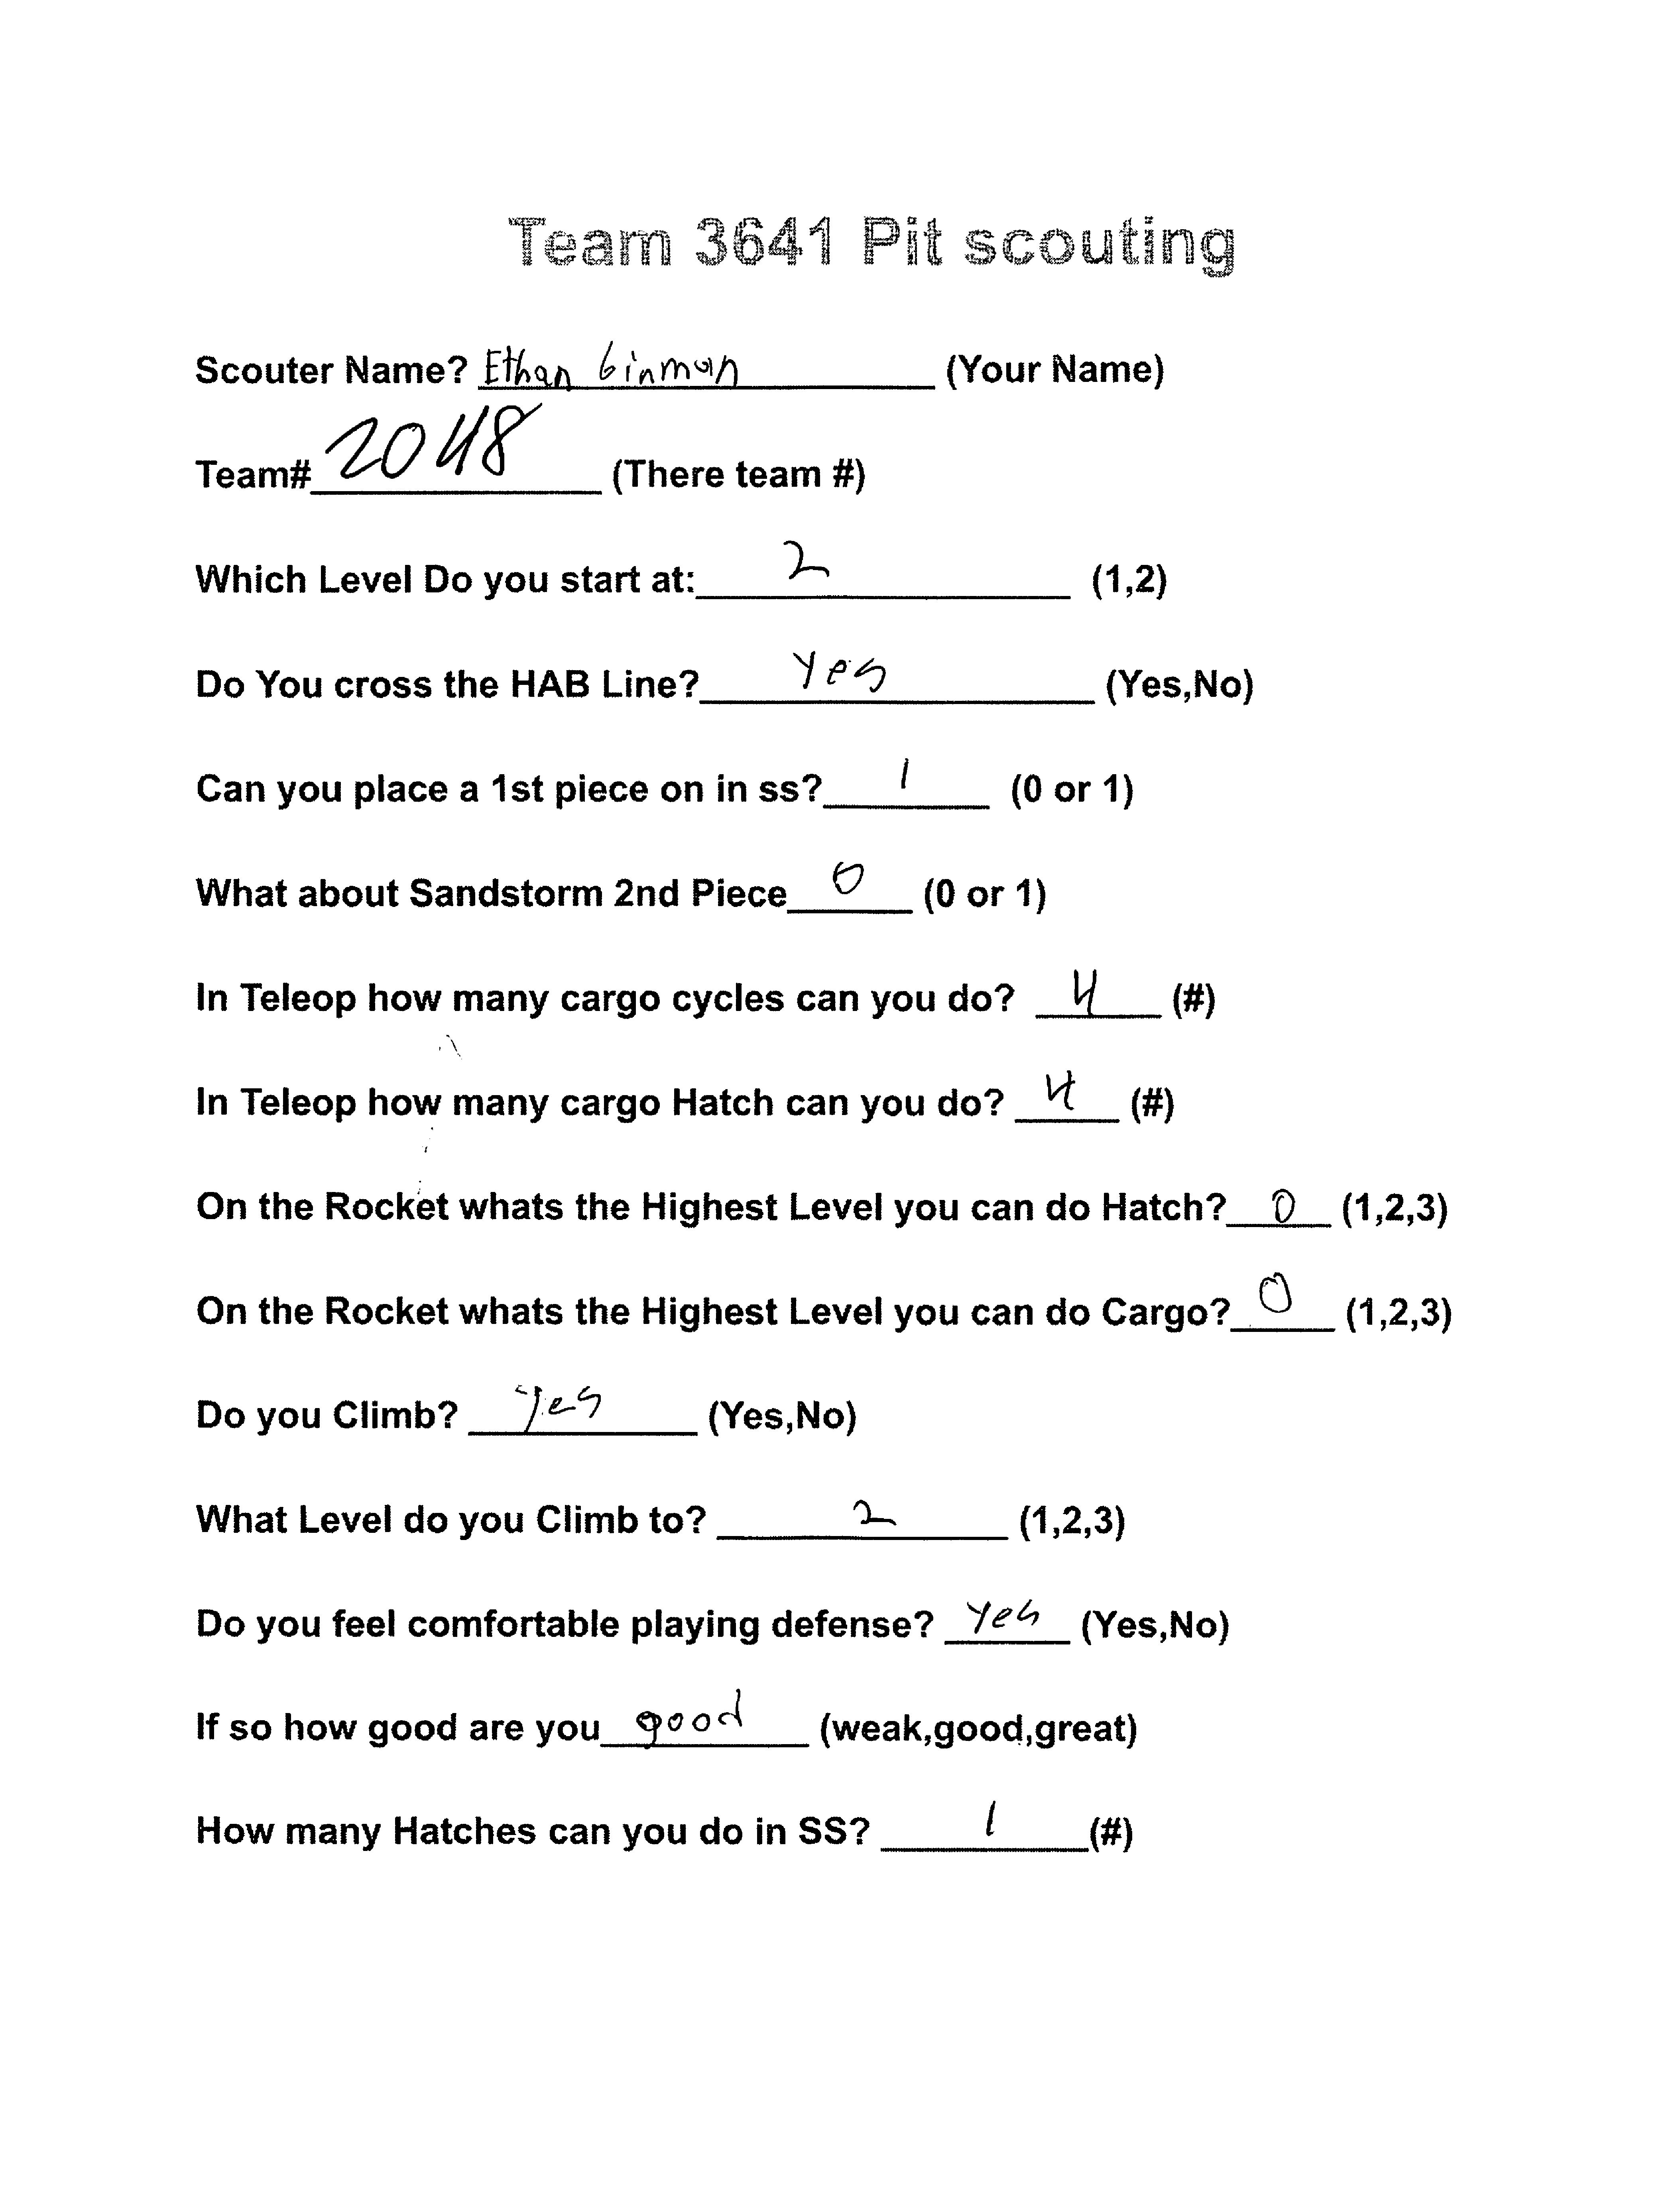 Team 3641 Pit scouting
Scouter Name? Ethan binman (Your Name)
Team# 2048 (There team #)
Which Level Do you start at: 2 (1,2)
Do You cross the HAB Line? Yes (Yes,No)
Can you place a 1st piece on in ss? 1 (0 or 1)
What about Sandstorm 2nd Piece 0 (0 or 1)
In Teleop how many cargo cycles can you do? 4 (#)
In Teleop how many cargo Hatch can you do? 4 (#)
On the Rocket whats the Highest Level you can do Hatch? 0 (1,2,3)
On the Rocket whats the Highest Level you can do Cargo? 0 (1,2,3)
Do you Climb? Yes (Yes,No)
What Level do you Climb to? 2 (1,2,3)
Do you feel comfortable playing defense? Yes (Yes,No)
If so how good are you good (weak,good,great)
How many Hatches can you do in SS? 1 (#)